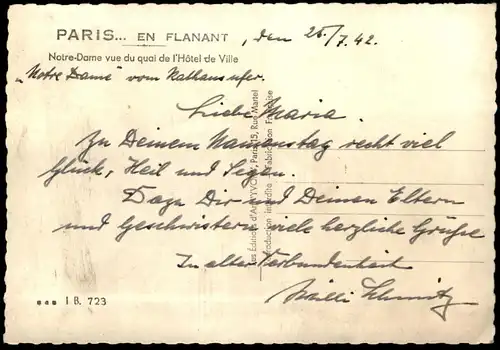 PARIS... EN FLANANT
, den 26./7.42.
Notre-Dame vue du quai de l'Hôtel de Ville
„Notre Dame" vom Rathausufer.
Liebe Maria.
Zu Deinem Namenstag recht viel
Glück, Heil und Segen.
Dazu Dir und Deinen Eltern
und Geschwistern viele herzliche Grüße
In alter Verbundenheit
Willi Schmitz
I B. 723
Les Editions d'Art YVON, Paris, 15, Rue Martel
Reproduction interdite Fabrication Française